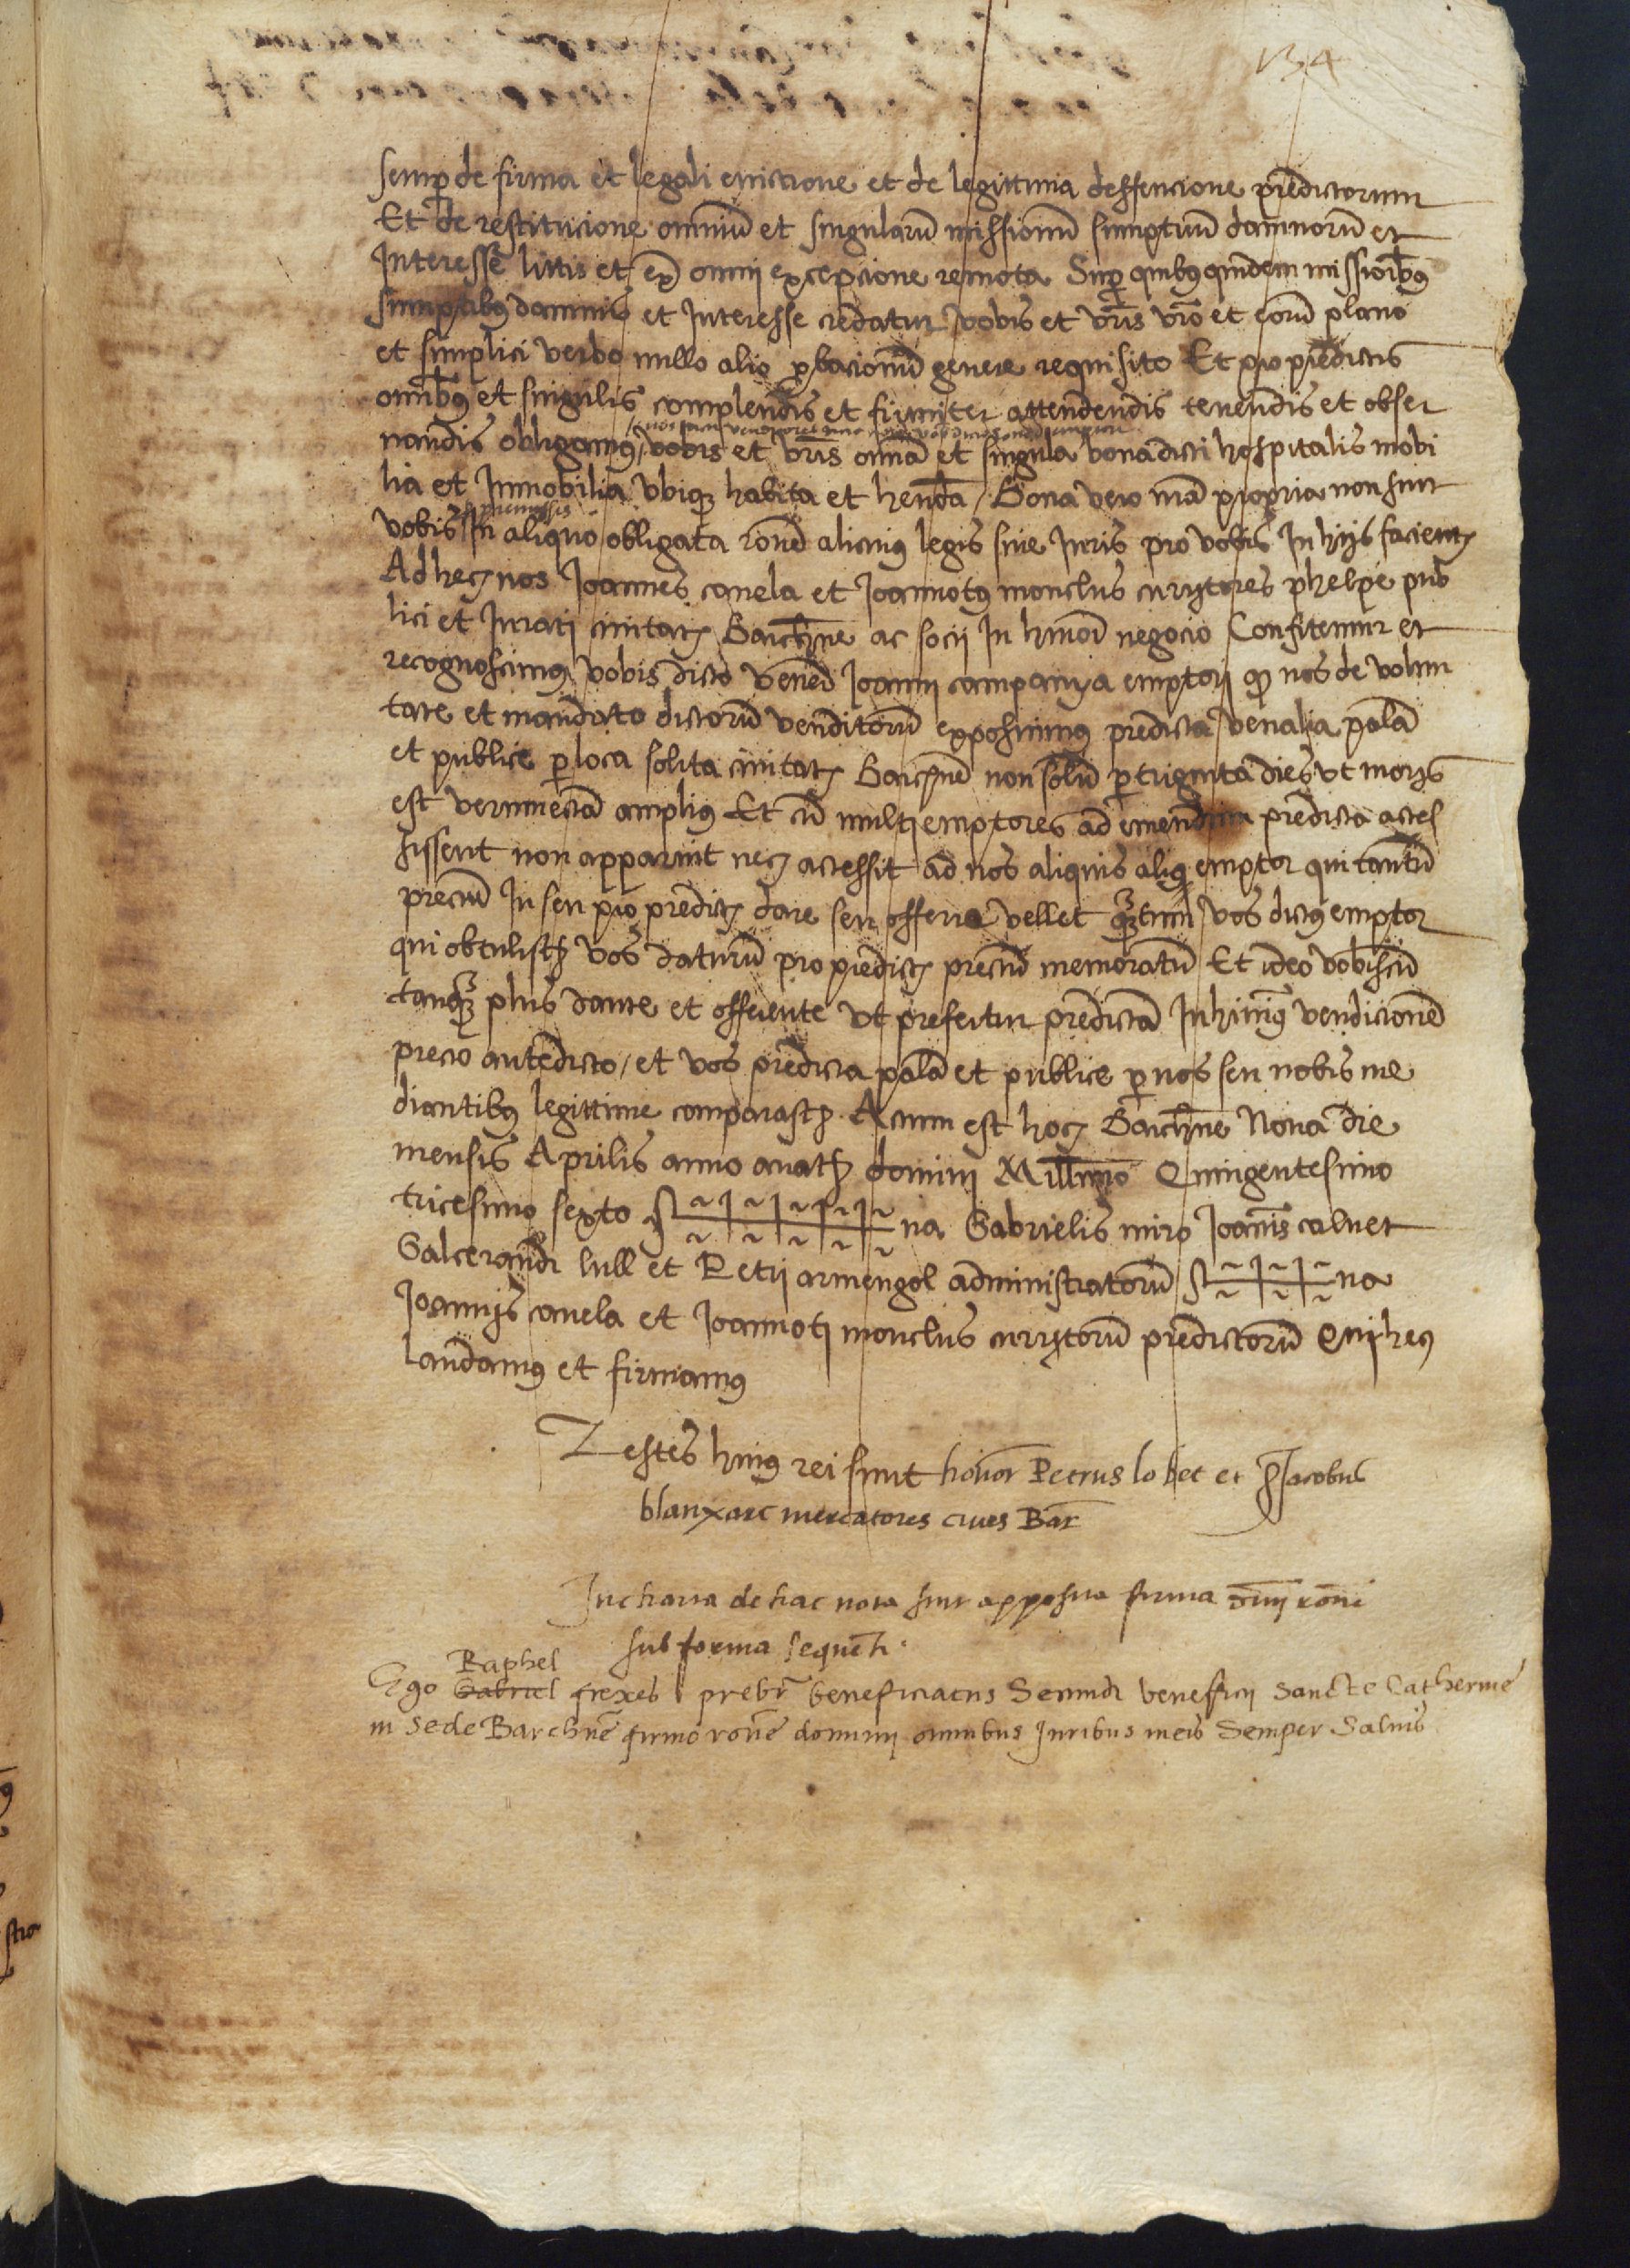 134
semp de firma et legali evictione et de legittima deffencione predictorum
Et de restitucione omniũ et singularũ missionũ sumptuũ damnorũ et
Interesse littis et ex̃ omni excepcione remota Sup quibus quidem missionibus
sumptibus damnis et Interesse credatur vobis et vr̃is vr̃o et eorũ plano
et simplici verbo nullo alio p̱bacionũ genere requisito Et pro predictis
omĩbus et singulis complendis et firmiter attendendis tenendis et obser
uandis obligamus vobis et vr̃is omña et singula bona dicti hospitalis mobi
lia et Inmobilia vbiqz habita et henda / Bona vero nr̃a propria non sint
premissis
vobis In aliquo obligata rõne alicuius legis siue Iuris pro vobis In hijs facientz
Ad hec nos Joannes canela et Joannotus monclus curritores p̱helpe pub
lici et Iurati ciuitatz Barchñe ac socij In hmõi negocio Confitemur et
recognoscimus vobis dicto Vened Joanni companya emptori qp nos de volun
tate et mandato dictorũ venditorũ exposuimus predicta venalia palã
et publice p loca solita ciuitatz Barchñe non solũ p triginta dies vt moris
est verum ectã amplius Et cũ multi emptores ad emendum predicta actes
sissent non apparuit nec actessit ad nos aliquis alius emptor qui tantũ
preciũ In seu pro predictz dare seu offerre vellet qztum vos dictus emptor
qui obtulistz vos daturũ pro predictz preciũ memoratũ Et ideo vobiscũ
tanqz plus dante et offerente vt prefertur predictã Inhiuimus vendicionẽ
precio antedicto / et vos predicta palã et publice p nos seu nobis me
diantibus legittime comparastz. Actum est hoc Barchñe Nona die
mensis Aprilis anno a natz domini Millmo Quingentesimo
tricesimo sexto S na Gabrielis miro Joanis caluet
Galcerandi lull et Petri armengol administratorũ S na
Joannis canela et Joannoti monclus curritorũ predictorũ Qui hec
laudamus et firmamus
Testes huius rei sunt honor Petrus lobet et Jacobus
blanxarc mercatores ciues Bar̃
In charta de hac nota fuit apposita firma dnij rõni
sub forma sequenti.
Raphel
Ego Gabriel frexes prebr̃ beneficiatus Secundi beneffici Sancte Catherine
in Sede Barchñe firmo rõne dominij omnibus Iuribus meis Semper Saluis